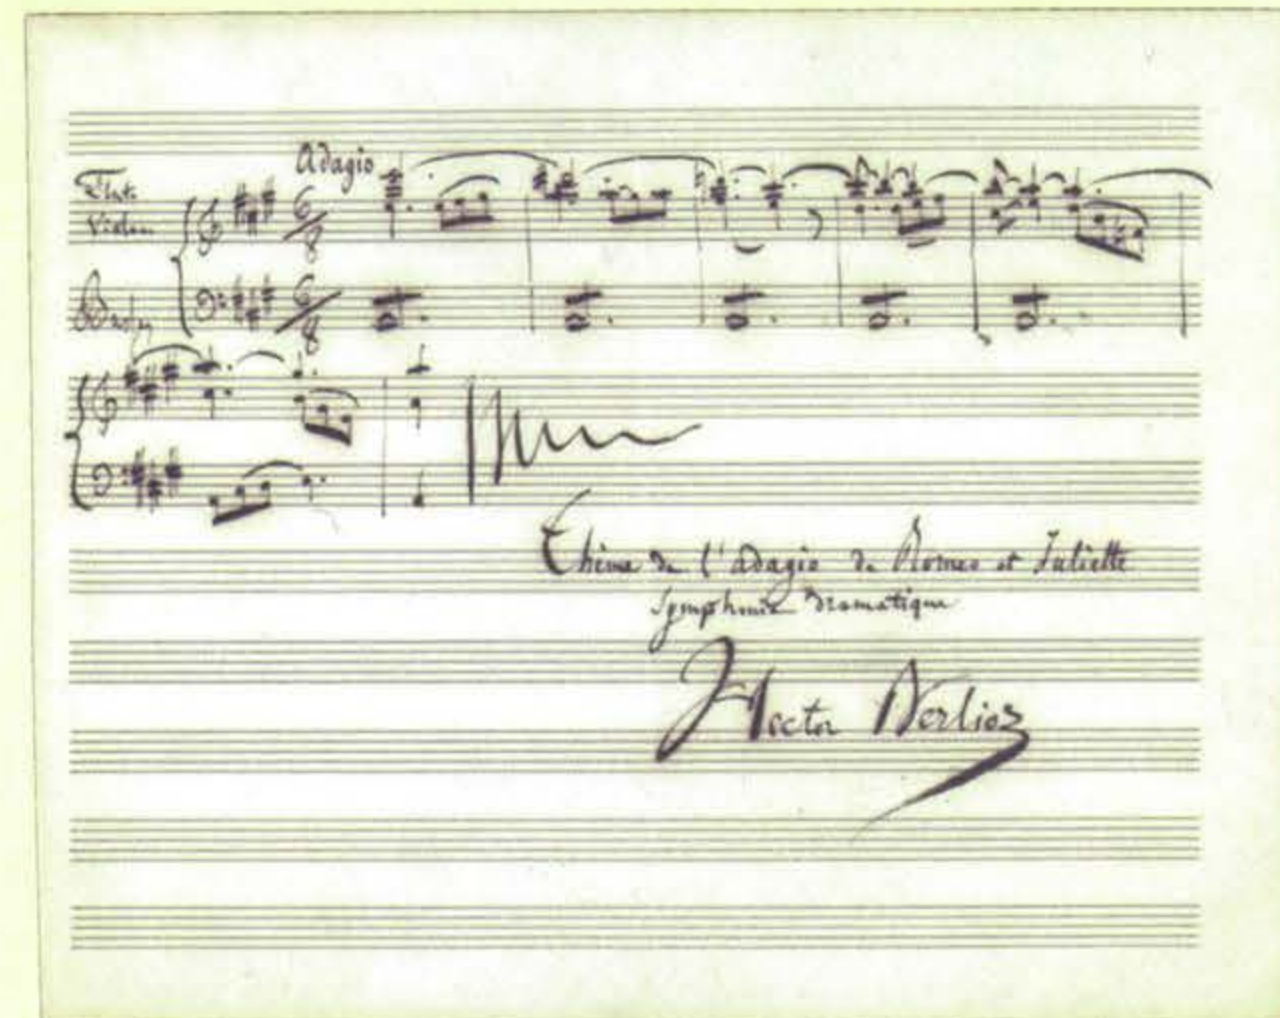 Adagio
Flute
Violon
6
8
6
8
Thême de l'adagio de Romeo et Juliette
Symphonie dramatique
Hector Berlioz